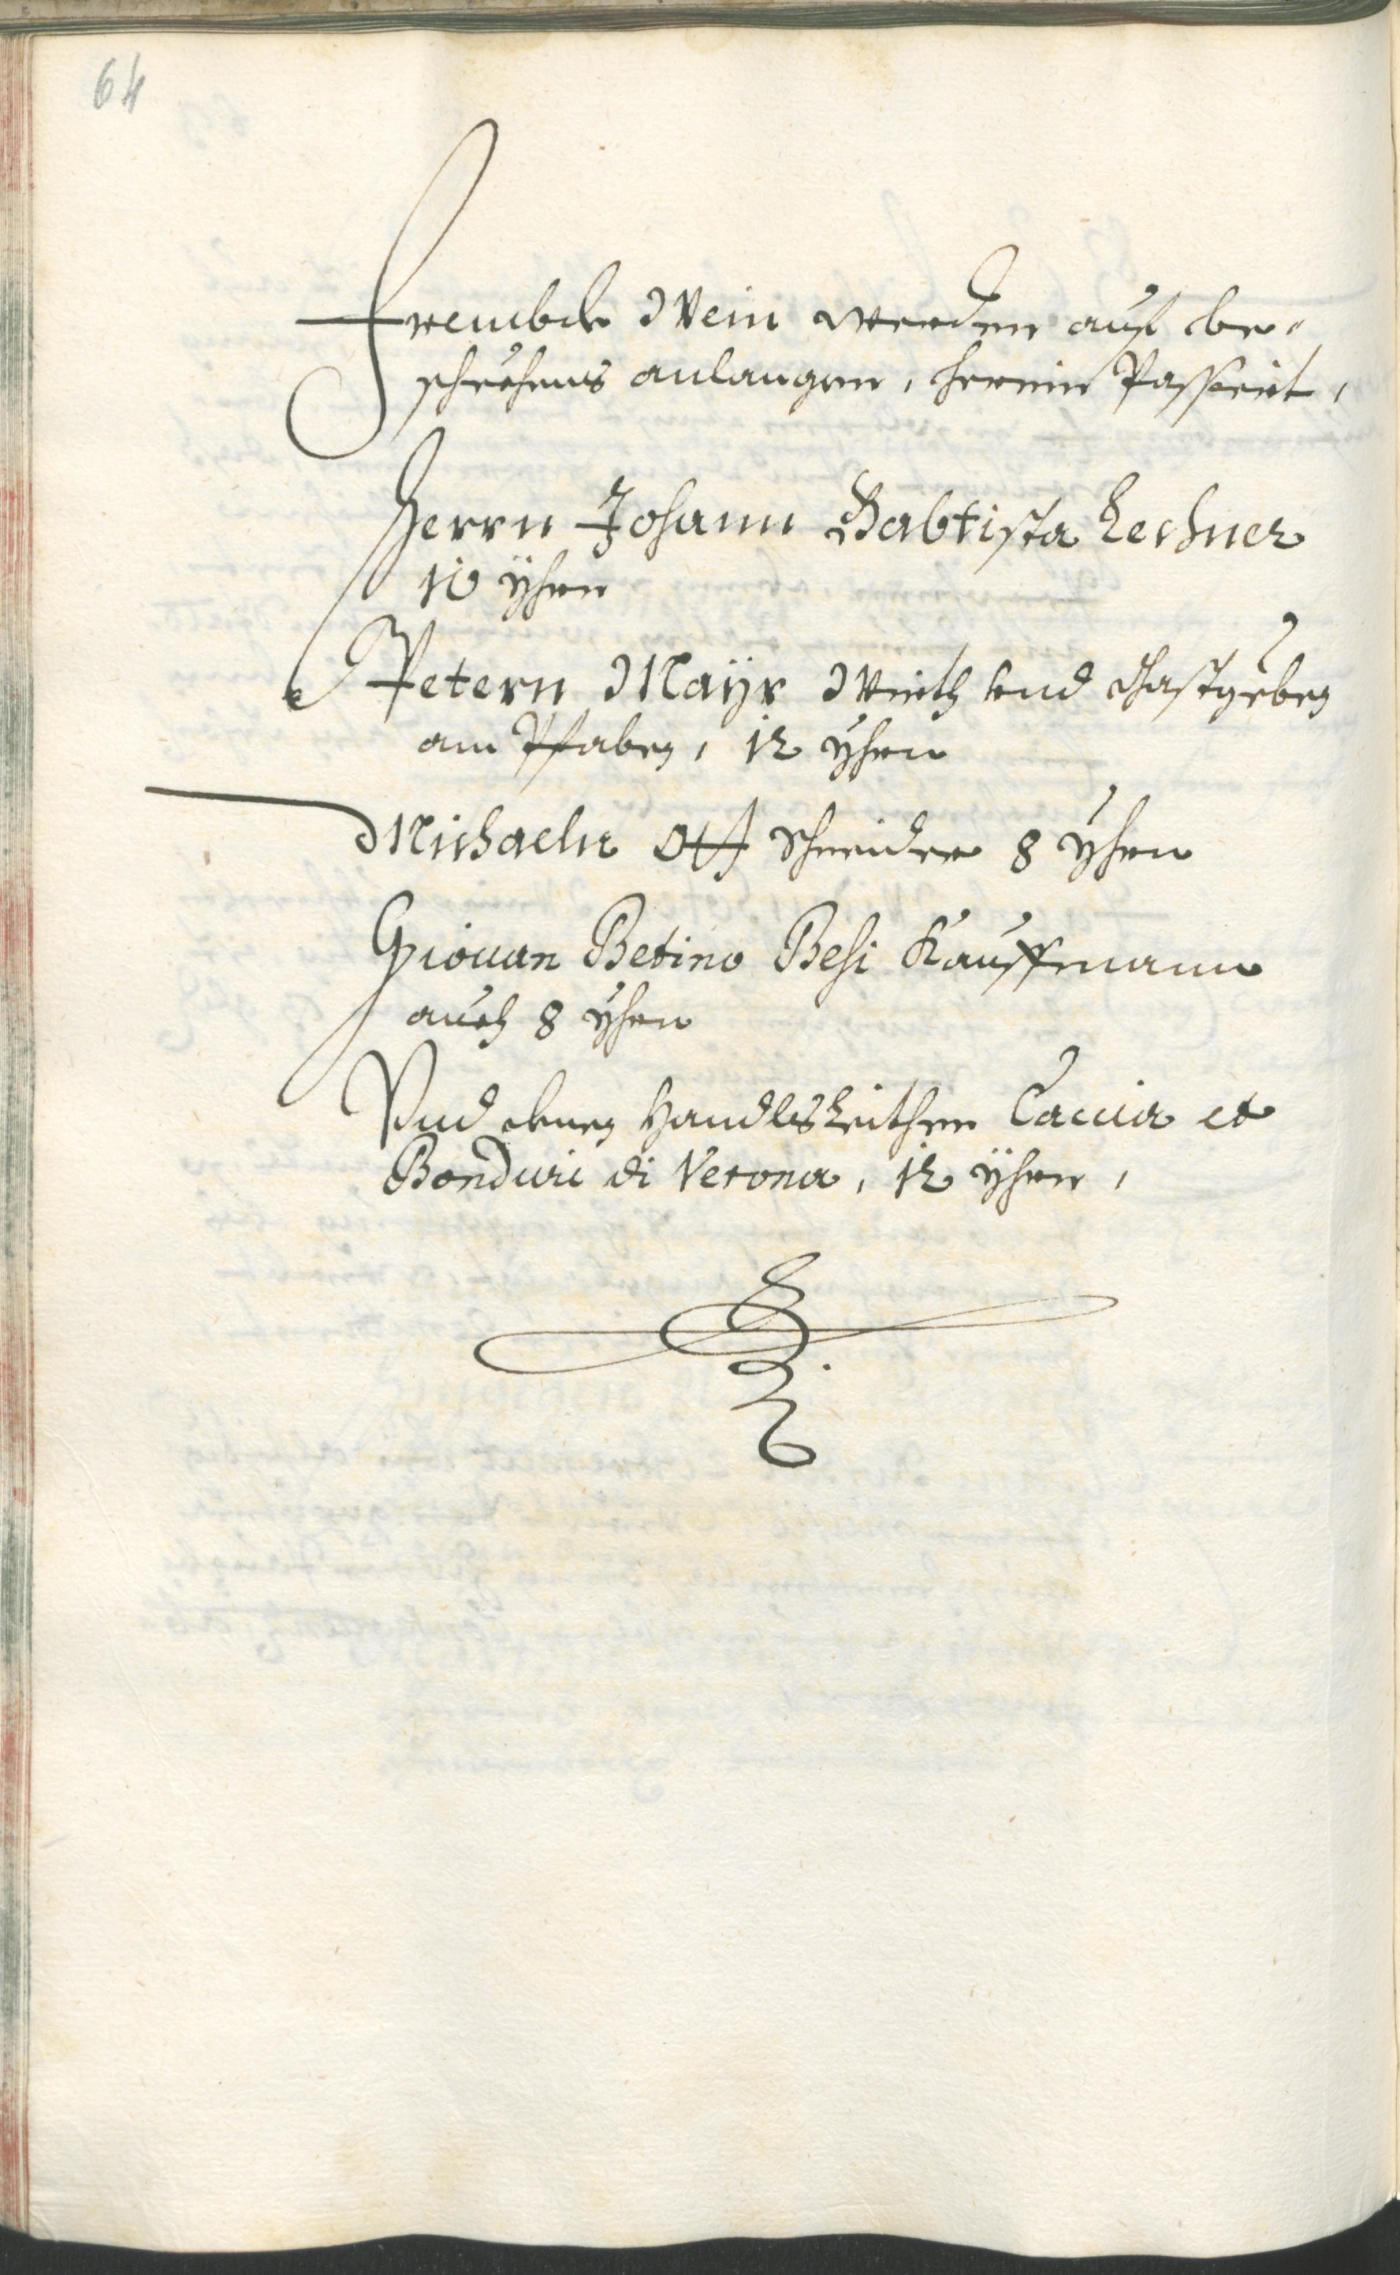 64
Frembde Wein werden auf be-
schehens anlangen, herein Passiert,
Herrn Johann Babtista Lechner
10 Yhrn
Petern Mayr Wirth vnd Gastgeben
am Pfaben, 12 Yhrn
Michaeln Ott Schneider 8 Yhrn
Giouan Betino Besi Kauffmann
auch 8 Yhrn
Vnd denen Handlsleithen Caccia et
Bonduri di Verona, 12 Yhrn,